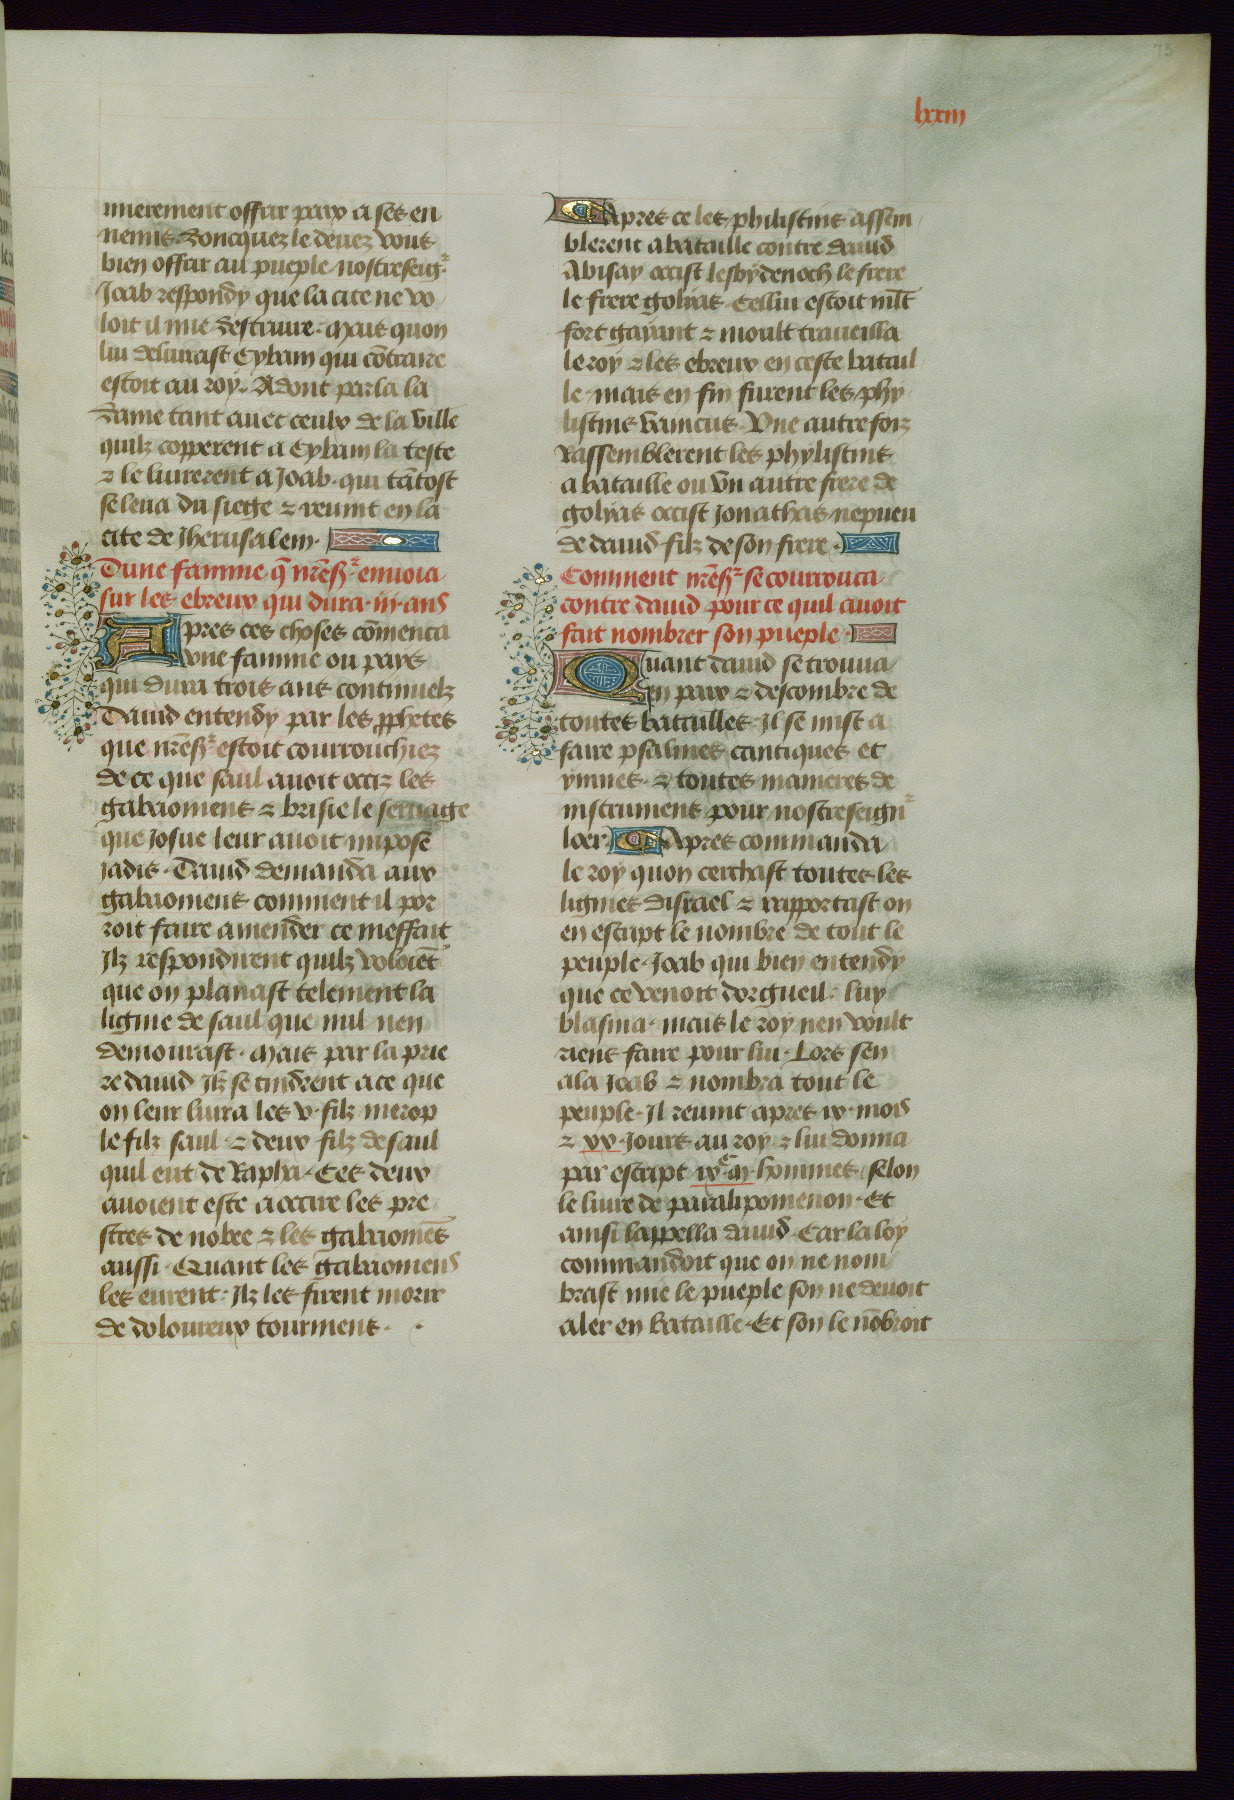 73
lxxiii
mierement offrir paix a ses en
nemis. Doncquez le deuez vous
bien offrir au pueple nostreseigr
Joab respondy que la cite ne vo
loit il mie destruire. Mais quon
lui deliurast Cybam qui cōtraire
estoit au roy. Adont parla la
dame tant auec ceulx de la ville
quilz copperent a Cybam la teste
⁊ le liurerent a Joab. qui tātost
se leua du siege ⁊ reuint en la
cite de Jherusalem.
Dune famine q̄ nr̄esr̄ enuoia
sur les ebreux qui dura .iij. ans
Apres ces choses cōmenca
vne famine ou pays
qui dura trois ans continuelz
Dauid entendy par les ꝓphetes
que nr̄esr̄ estoit courrouchiez
de ce que saul auoit occiz les
gabaoniens ⁊ brisie le seruage
que Josue leur auoit impose
jadis. Dauid demanda aux
gabaoniens comment il por
roit faire amender ce meffait
Ilz respondirent quilz voloiēt
que on planast telement la
lignie de saul que nul nen
demourast. Mais par la prie
re dauid Ilz se tindrent a ce que
on leur liura les v. filz merop
le filz saul. ⁊ deux filz de saul
quil eut de Rapha. Ces deux
auoient este a occire les pre
stres de nobee ⁊ les gabaoniēs
aussi. Quant les gabaoniens
les eurent. Ilz les firent morir
de doloureux tourmens.
Apres ce les philistins assem
blerent a bataille contre dauid
Abisay occist lesbydenoch le frere
le frere golyas. Cellui estoit mlt̄
fort gayant ⁊ moult traueilla
le roy ⁊ les ebreux en ceste batail
le. mais en fin furent les phy
listins vaincus. Vne autre foiz
Rassemblerent les phylistins
a bataille ou vn autre frere de
golyas occist Jonathas nepueu
de dauid filz de son frere.
Comment nr̄esr̄ se courrouca
contre dauid pour ce quil auoit
fait nombrer son pueple.
Quant dauid se trouua
en paix ⁊ descombre de
toutes batailles. Il se mist a
faire psalmes cantiques et
ymnes. ⁊ toutes manieres de
instrumens pour nostreseignr
loer. Apres commanda
le roy quon cerchast toutes les
lignies disrael ⁊ rapportast on
en escript le nombre de tout le
peuple. Joab qui bien entendy
que ce venoit dorgueil. luy
blasma. mais le roy nen voult
riens faire pour lui. Lors sen
ala Joab ⁊ nombra tout le
peuple. Il reuint apres ix. mois
⁊ xx. Jours au roy. ⁊ lui donna
par escript ixͨ.m. hommes selon
le liure de paralipomenon. Et
ainsi lappella dauid. Car la loy
commandoit que on ne nom
brast mie le pueple son ne deuoit
aler en bataille. Et son le nōbroit